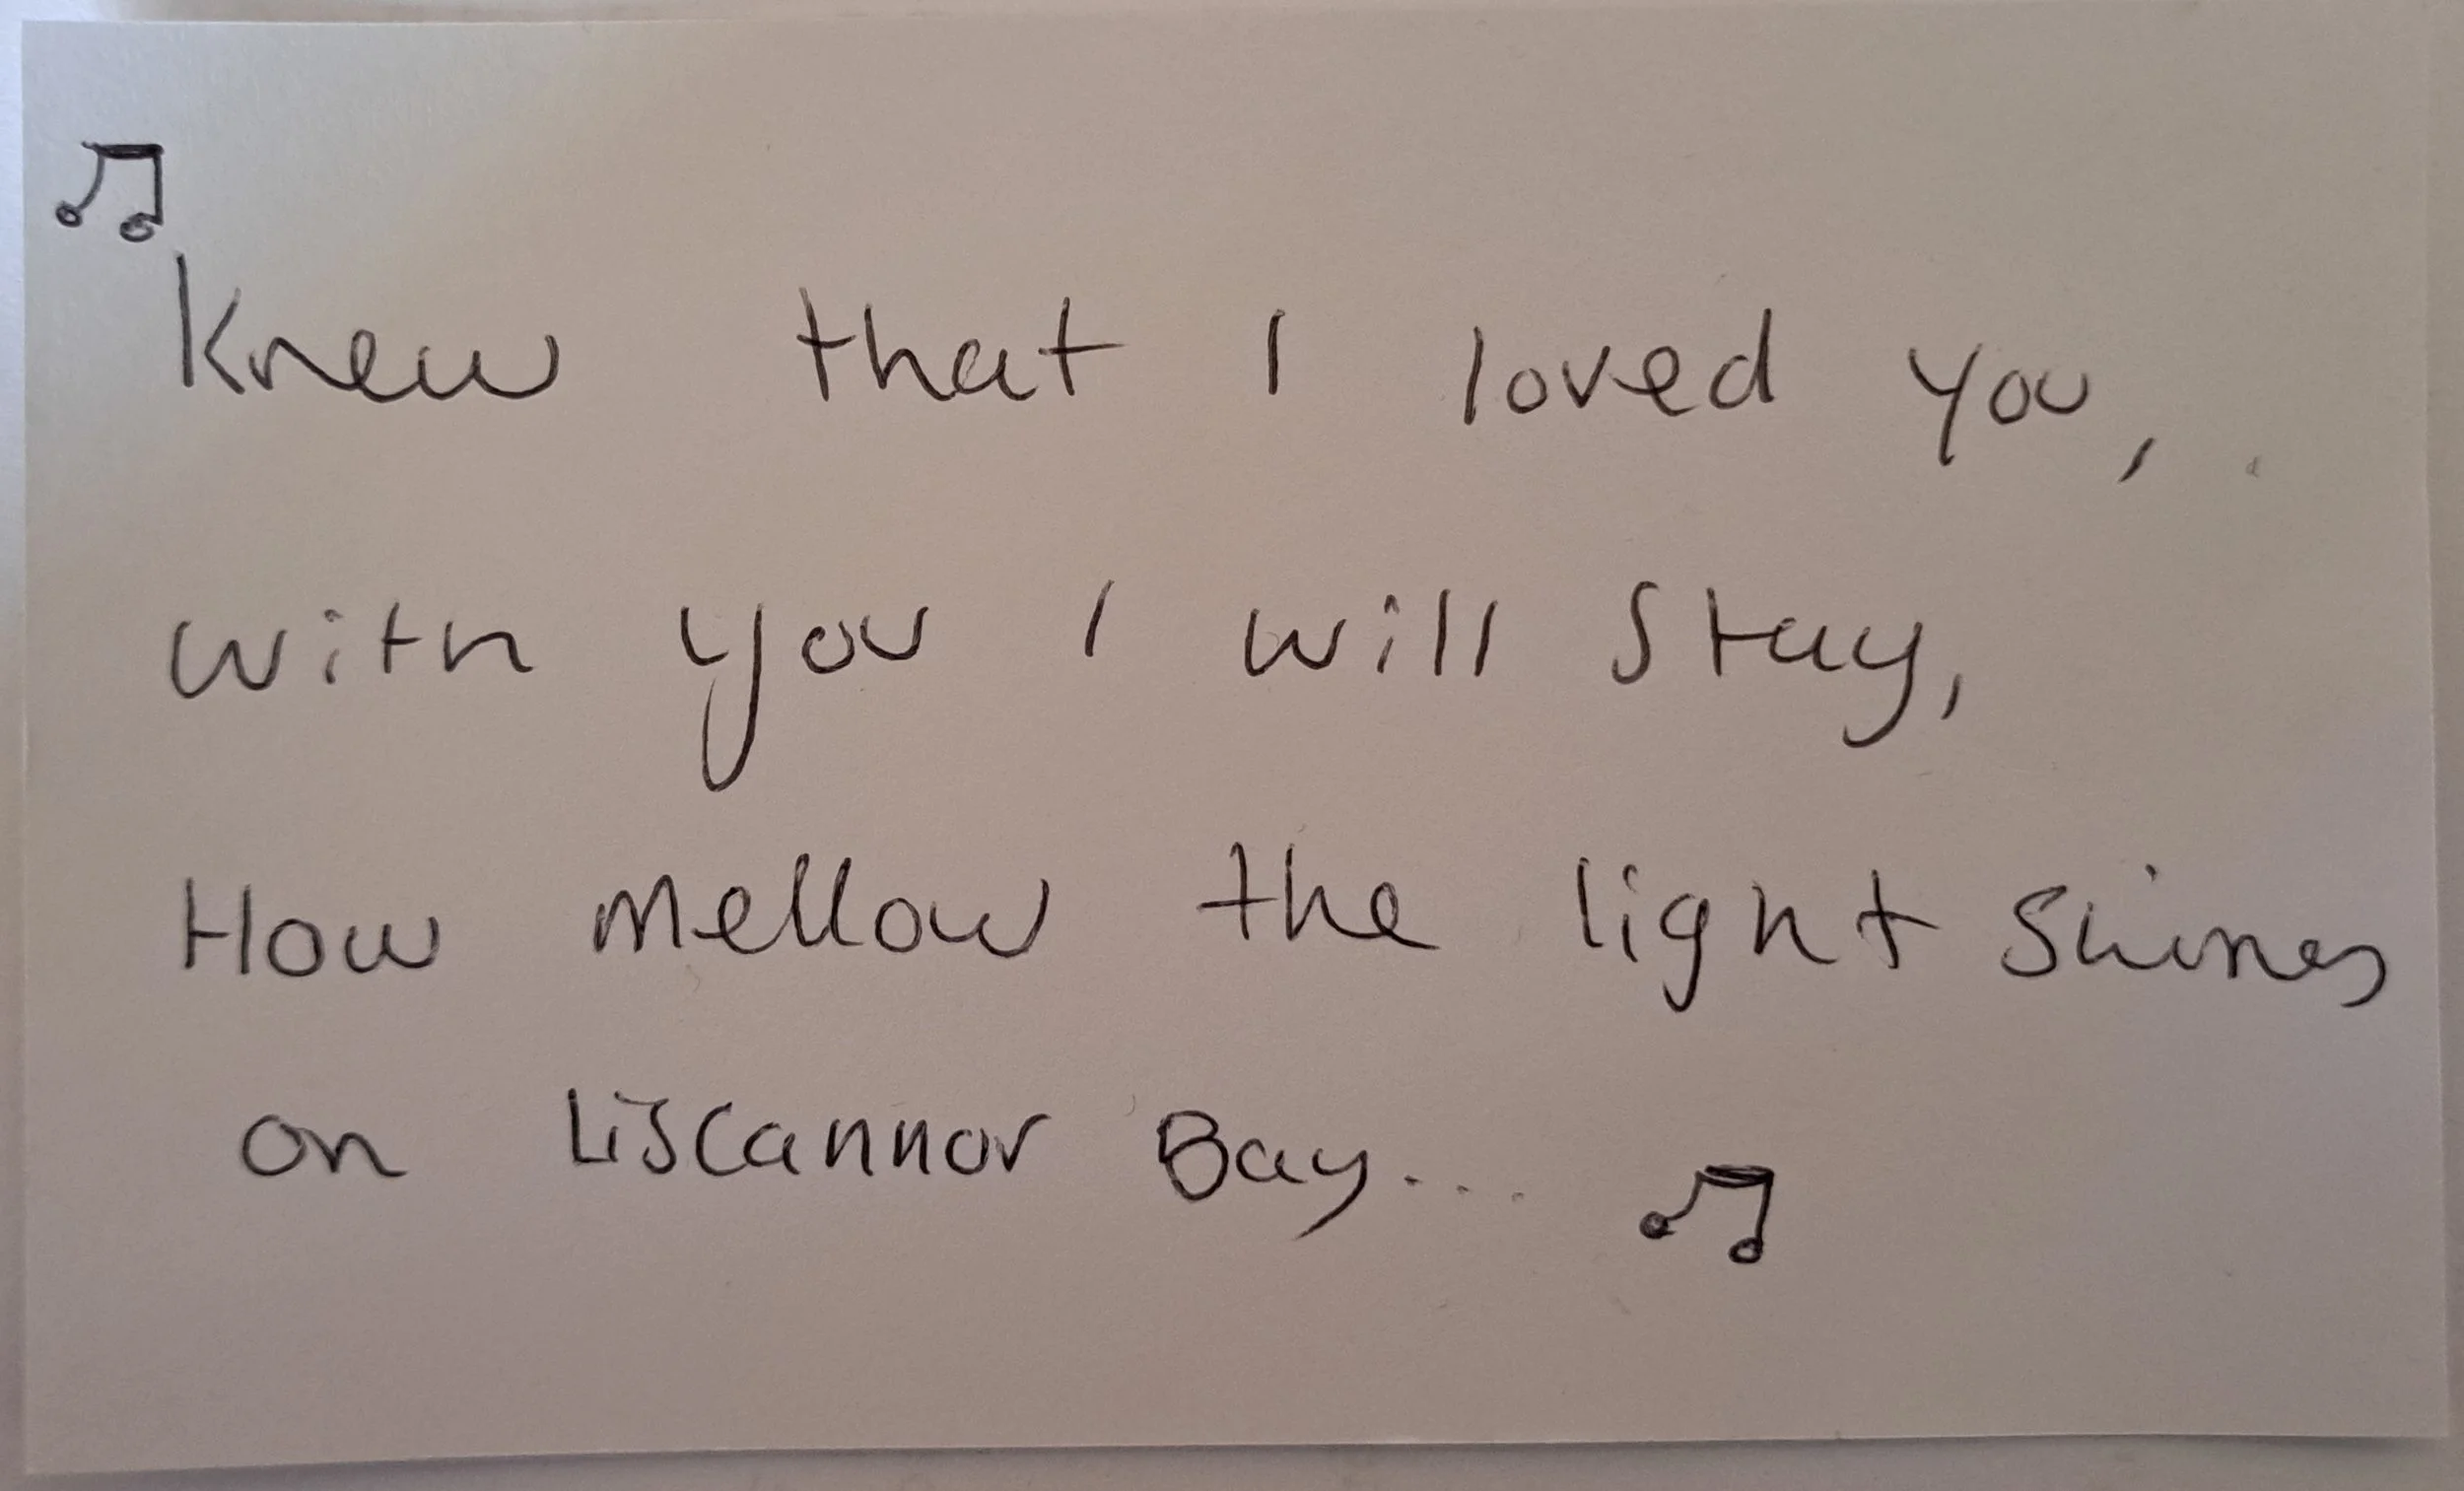 Knew that I loved you,
with you I will stay,
How mellow the light shines
on Liscannor Bay...